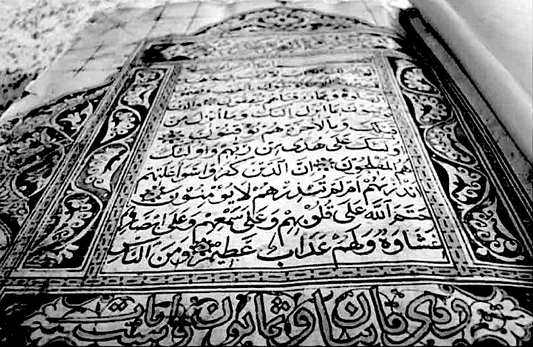 يؤمنون بما انزل اليك وما انزل من
قبلك وبالاخرة هم يوقنون
اولئك على هدى من ربهم واولئك
هم المفلحون ان الذين كفروا سواء عليهم
ءانذرتهم ام لم تنذرهم لا يؤمنون
ختم الله على قلوبهم وعلى سمعهم وعلى ابصارهم
غشاوة ولهم عذاب عظيم ومن الناس
وهي مائتان وثمانون وست ايات